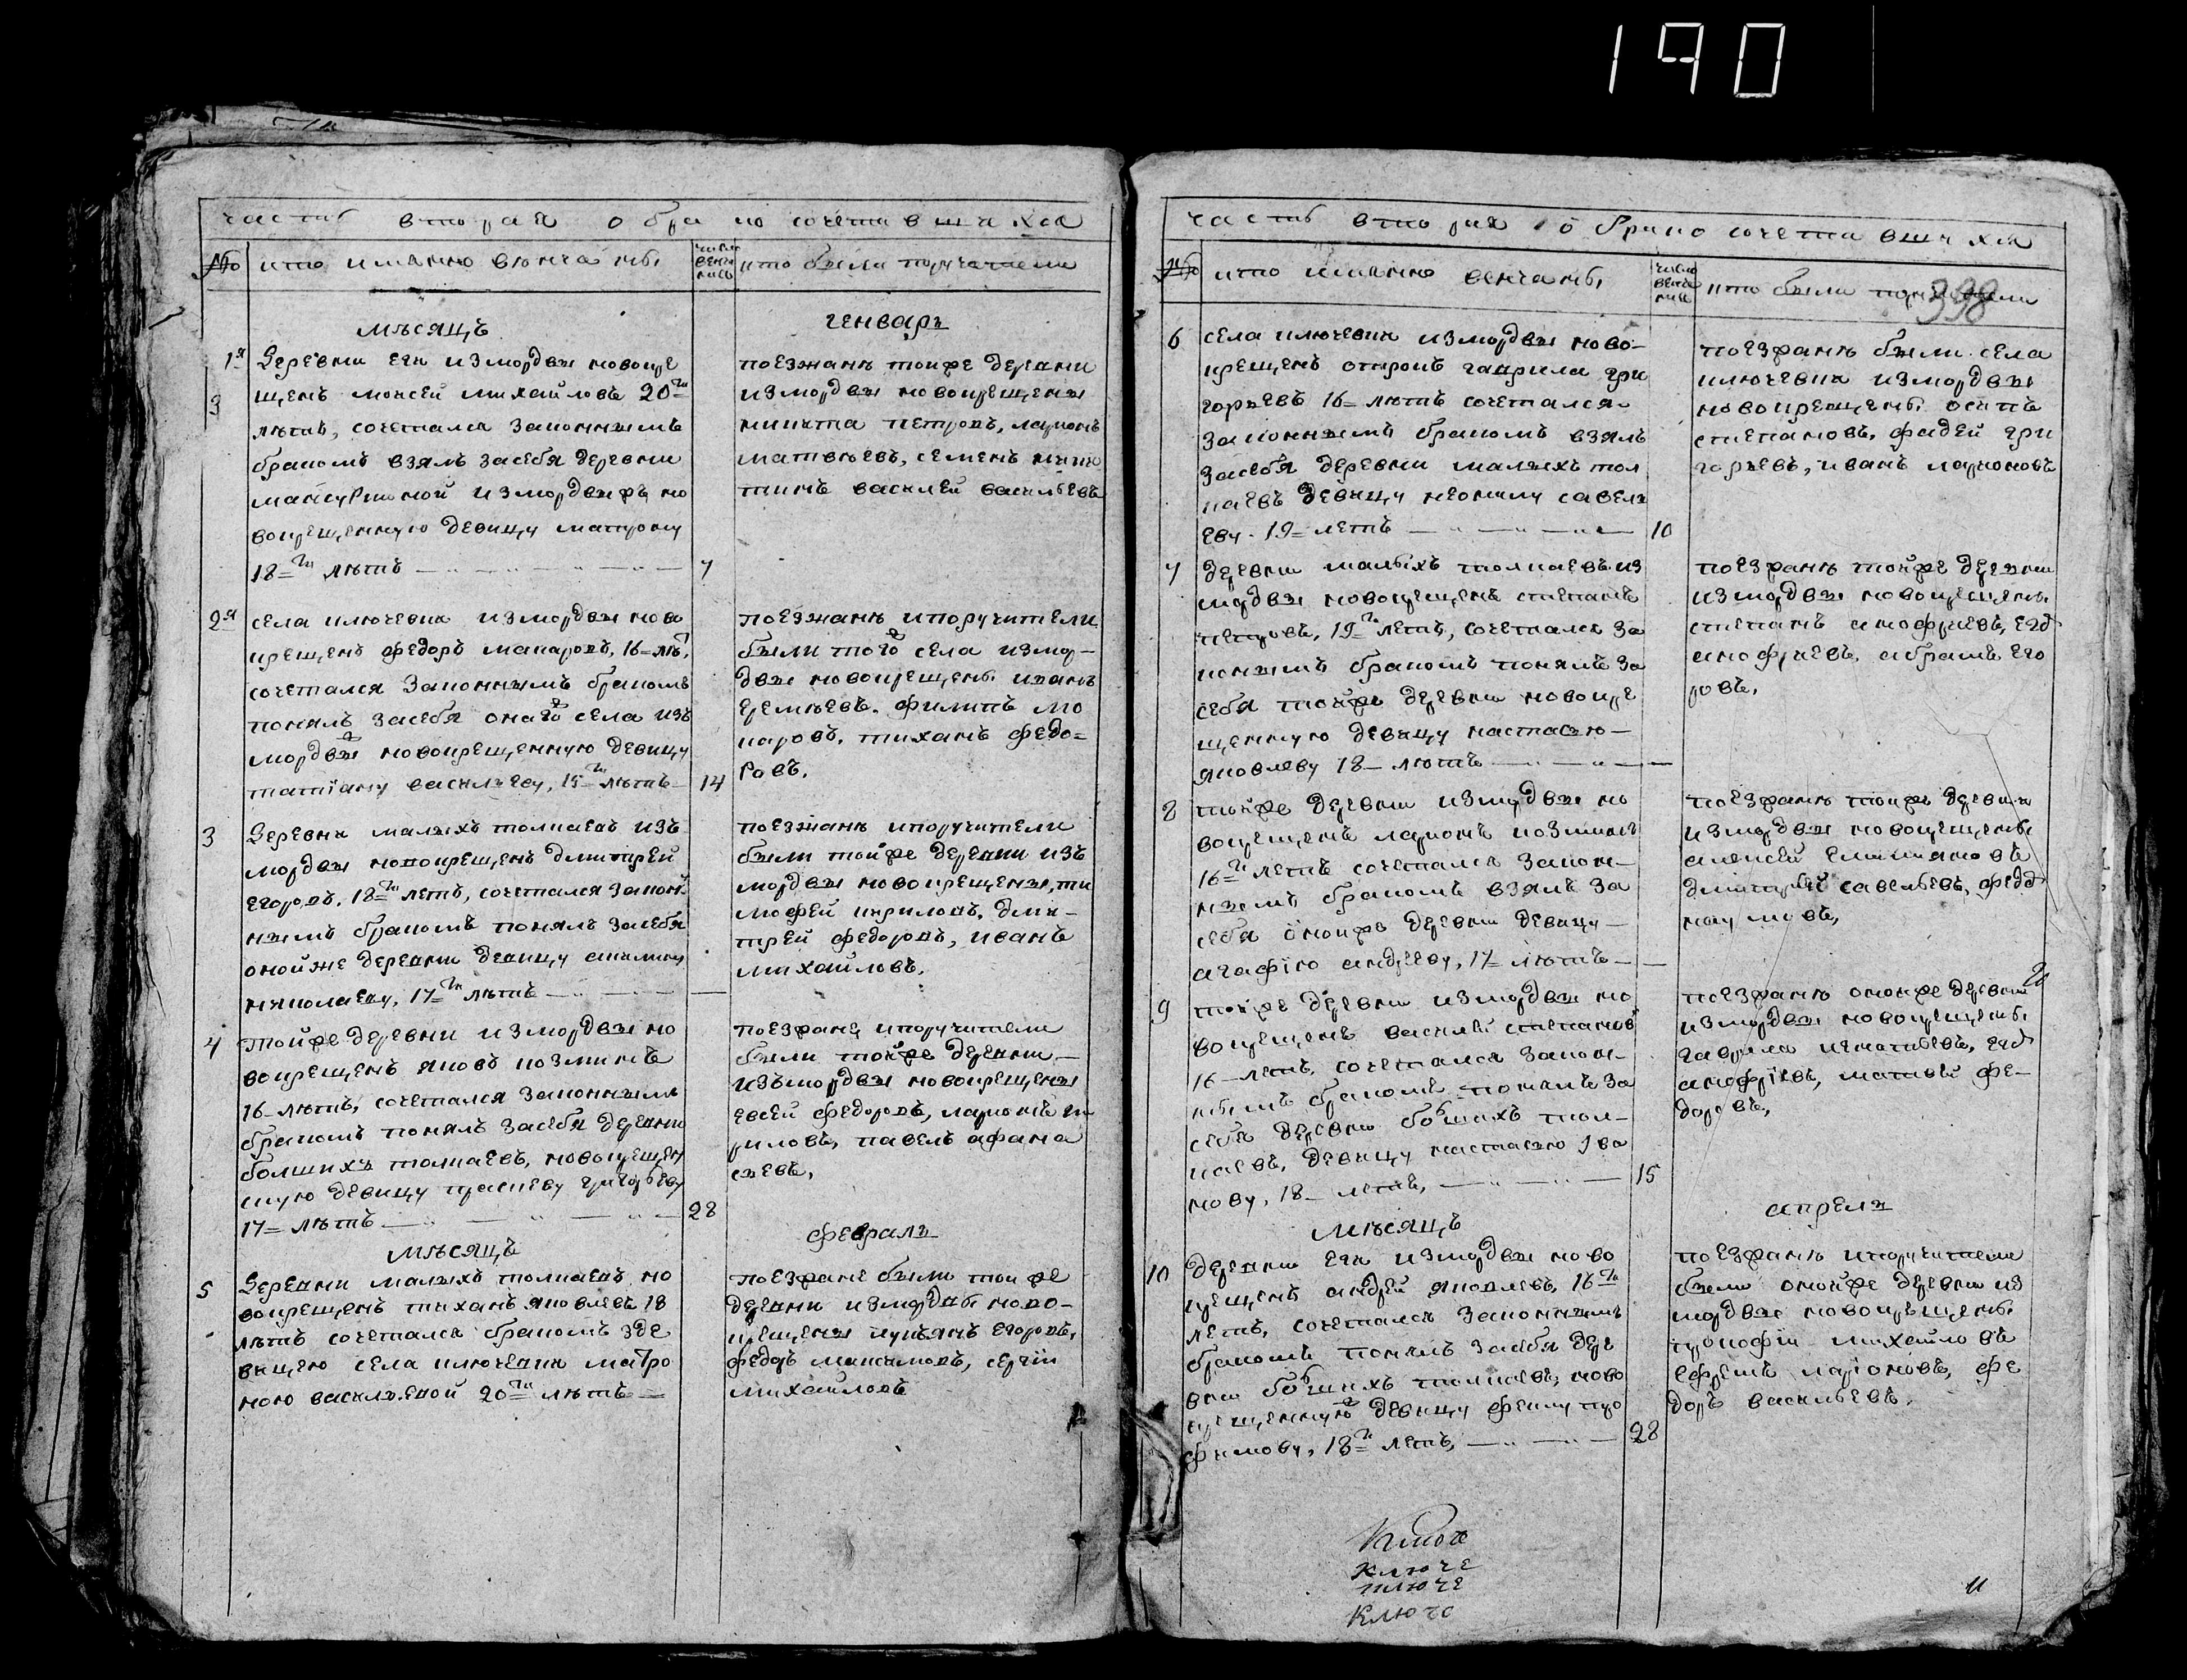 190
часть вторая о бра ко сочета вши хся
№ кто имянно венчаны число венчания кто были поручители
мѣсяцъ генварь
1я деревни еги измордвы новокре
щенъ моисей михайловъ 20ти
лѣтъ, сочетался законнымъ
бракомъ взялъ засебя деревни
измордвы жъ но
вокрещенную девицу матрону
18ти лѣтъ 7
3
поезжанѣ тоиже деревни
измордвы новокрещены
никита петровъ, ларионъ
матвѣевъ, семенъ ники
тинъ василей васильевъ
2я села ключевки измордвы ново
крещенъ федоръ макаровъ, 16 лѣ,
сочетался законнымъ бракомъ
понялъ засебя онаго села изъ
мордвы новокрещенную девицу
татіану васильеву, 15ти лѣтъ 14
поезжанѣ ипоручители
были того села измор-
двы новокрещены иванъ
еремѣевъ. филипъ мо
каровъ. тиханъ федо=
ровъ.
3 деревни малыхъ толкаевъ изъ
мордвы новокрещенъ дмитрей
егоровъ. 18ти летъ, сочетался закон
нымъ бракомъ понялъ засебя
онойже деревни девицу акилину
николаеву, 17ти лѣтъ
поезжанѣ ипоручители
были тойже деревни изъ
мордвы новокрещены, ти
мофей кириловъ. дми-
трей федоровъ, иванъ
михайловъ.
4 тойже деревни измордвы но
вокрещенъ яковъ козминъ
16 лѣтъ, сочетался законнымъ
бракомъ понялъ засебя деревни
болшихъ толкаевъ, новокрещен
ную девицу праскеву григорьеву
17 лѣтъ 28
поезжанѣ ипоручители
были тойже деревни
изъмордвы новокрещены
евсей федоровъ, ларионъ ки
риловъ, павелъ афана
сьевъ,
мѣсяцъ февраль
5 деревни малыхъ толкаевъ но
вокрещенъ тиханъ яковлевъ 18
лѣтъ сочетался бракомъ здe
вицею села ключевки матро
ною васильевой 20ти лѣтъ
поезжане были тои же
деревни измордвы ново-
крещены лукьянъ егоровъ,
федоръ максимовъ, сергіи
михаиловъ
часть вторая о брако сочета вши хся
№ кто имянно венчаны число венчания кто были поручители
398
6 села ключевки измордвы ново-
крещенъ отрокъ гаврила гри
горьевъ 16 лѣтъ сочетался
законнымъ бракомъ взялъ
засебя деревни малыхъ тол
каевъ девицу неонилу савелъ
еву. 19 летъ 10
поезжанѣ были села
ключевки измордвы
новокрещены осипъ
степановъ, фадей гри
горьевъ, иванъ ларионовъ
7 деревни малыхъ толкаевъ из
мордвы новокрещенъ степанъ
петровъ, 19ти летъ, сочетался за
коннымъ бракомъ понялъ за
себя тойже деревни новокре
щенную девицу настасью
яковлеву 18 лѣтъ
поезжанѣ тойже деревни
измордвы новокрещены
степанъ анофриевъ, егоръ
анофриевъ. абрамъ его
ровъ.
8 тойже деревни измордвы но
вокрещенъ ларионъ козминъ
16ти летъ сочетался закон-
нымъ бракомъ взялъ за
себя онойже деревни девицу
агафію андрееву, 17 лѣтъ
поезжанѣ тоиже деревни
измордвы новокрещены
алексей емилияновъ
дмитрей савельевъ, федоръ
наумовъ,
9 тойже деревни измордвы но
вокрещенъ василей степановъ
16 летъ, сочетался закон-
нымъ бракомъ понялъ за
себя деревни болшихъ тол-
каевъ, девицу настасью ива
нову, 18 летъ, 15
поезжанѣ онойже деревни
измордвы новокрещены
гаврила игнатьевъ, егоръ
анофріевъ, матвѣй фе-
доровъ,
мѣсяцъ апрель
10 деревни еги измордвы ново
крещенъ андрей яковлевъ, 16ти
летъ, сочетался законнымъ
бракомъ понялъ засебя дере
вни болшихъ толкаевъ, ново
крещенную девицу феклу тро
фимову, 18ти летъ, 28
поезжанѣ ипоручители
были онойже деревни из
мордвы новокрещены
прокофіи михайловъ
ефремъ ларіоновъ, фе
доръ васильевъ.
Ключе
ключе
ключе
Ключе